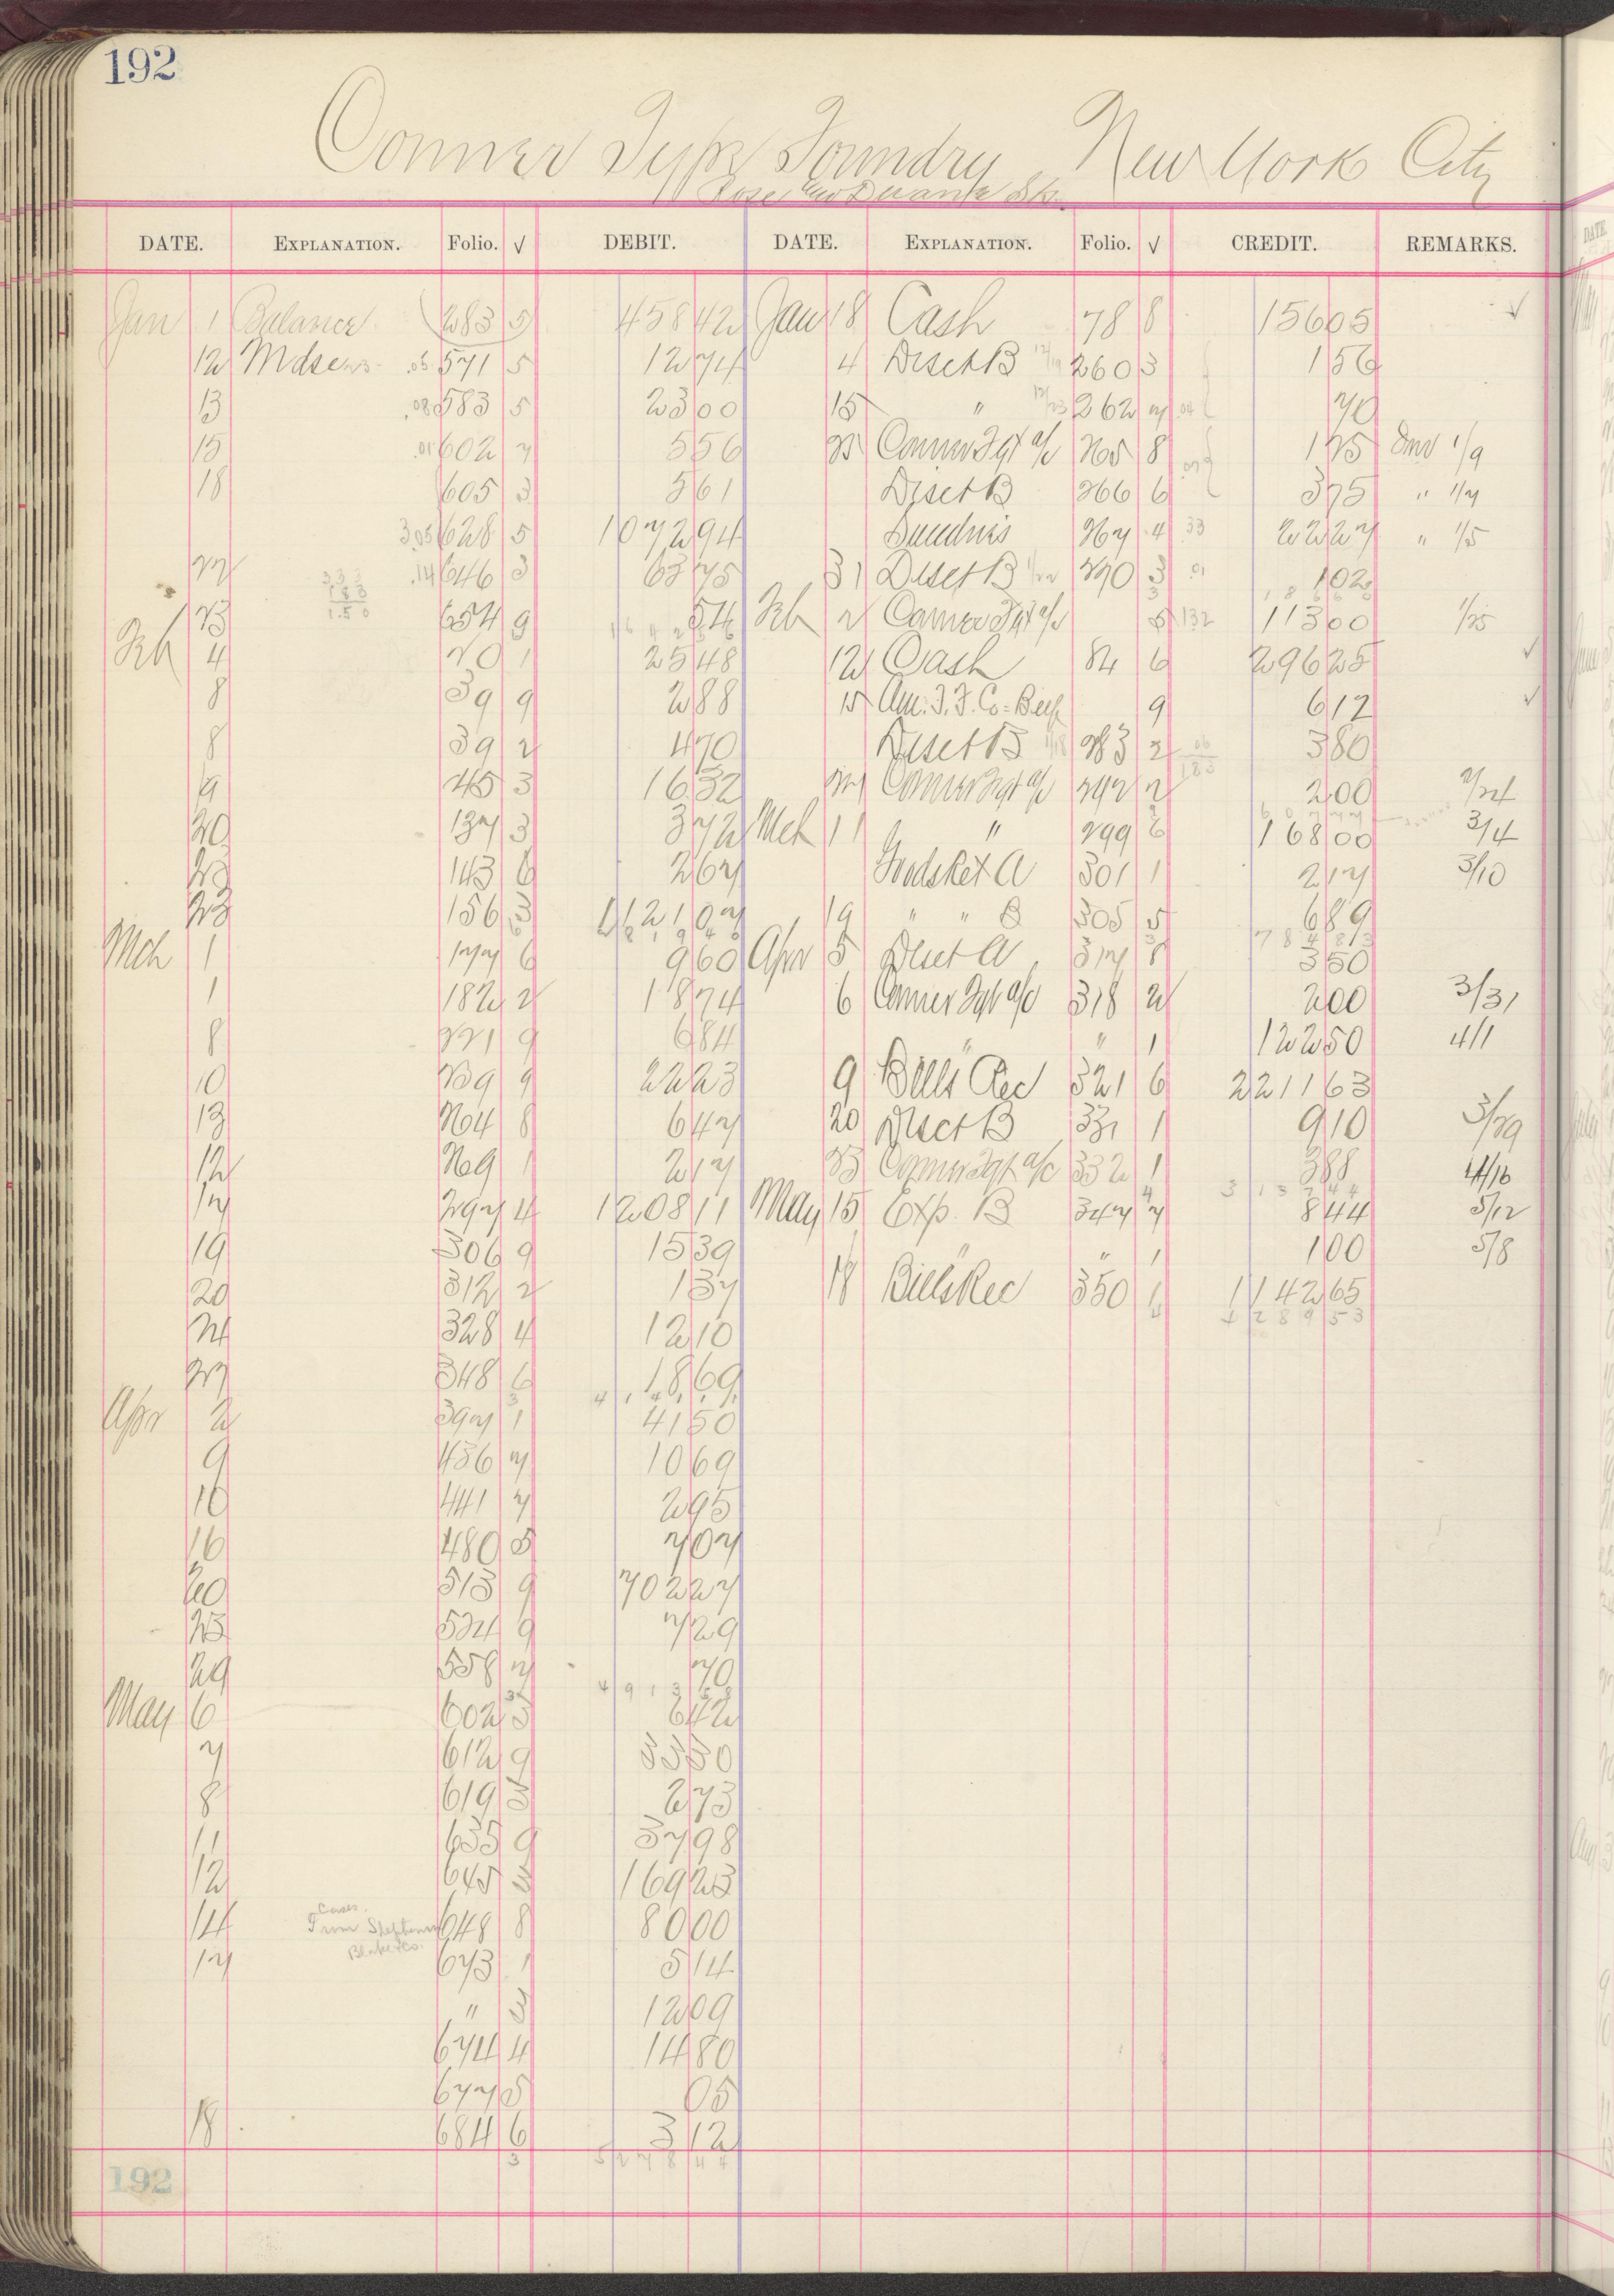 192
Conner Type Foundry New York City
Rose and Duane Sts.
DATE. EXPLANATION. Folio. √ DEBIT. DATE. EXPLANATION. Folio. √ CREDIT. REMARKS.
Jan 1 Balance 283 5 458 42 Jan 18 Cash 78 8 156 05 √
12 Mdse .05 571 5 12 74 4 Disct B 260 3 1 56
13 .08 583 5 23 00 15 " 262 7 .04 70
15 .01 602 7 5 56 25 Conner Fgt a/c 265 8 1 25 Inv 1/9
18 605 3 5 61 Disct B 266 6 3 75 " 1/7
3.05 628 5 1072 94 Sundries 267 4 .33 22 27 " 1/5
22 .14 646 3 63 75 31 Disct B 1/22 270 3 .01 1 02
333
183
1.50
23 654 9 54 Feb 2 Conner Fgt a/c 5 132 113 00 1/25
Feb 4 20 1 25 48 12 Cash 84 6 296 25 √
8 39 9 2 88 15 Am. T. F. Co. 9 6 12 √
8 39 2 4 70 Disct B 1/18 283 2 3 80
9 45 3 16 32 27 Conner Fgt a/c 292 2 2 00 2/24
20 137 3 3 72 Mch 11 " 299 6 168 00 3/4
23 143 6 2 67 Goods Ret A 301 1 2 17 3/10
23 156 3 1121 07 19 " " B 305 5 6 89
Mch 1 177 6 9 60 Apr 5 Disct A 317 8 3 50
1 182 2 18 74 6 Conner Fgt a/c 318 2 2 00 3/31
8 221 9 6 84 " " 1 122 50 4/1
10 239 9 22 23 9 Bills Rec 321 6 2211 63
13 264 8 6 47 20 Disct B 331 1 9 10 3/29
12 269 1 2 17 23 Conner Fgt a/c 332 1 3 88 4/16
17 297 4 1208 11 May 15 Exp. B 347 7 8 44 5/12
19 306 9 15 39 " " 1 1 00 5/8
20 312 2 1 37 18 Bills Rec 350 1 1142 65
24 328 4 12 10
27 348 6 18 69
Apr 2 397 1 41 50
9 436 7 10 69
10 441 7 2 95
16 480 5 7 07
20 513 9 702 27
23 524 9 7 29
29 558 7 70
May 6 602 3 6 42
7 612 9 33 30
8 619 3 2 73
11 635 9 37 98
12 645 3 169 23
14 Cases From Stephenson Blake & Co. 648 8 80 00
17 673 1 5 14
" 3 12 09
674 4 14 80
677 5 05
18 684 6 3 12
3 5 2 7 8 4 4
192